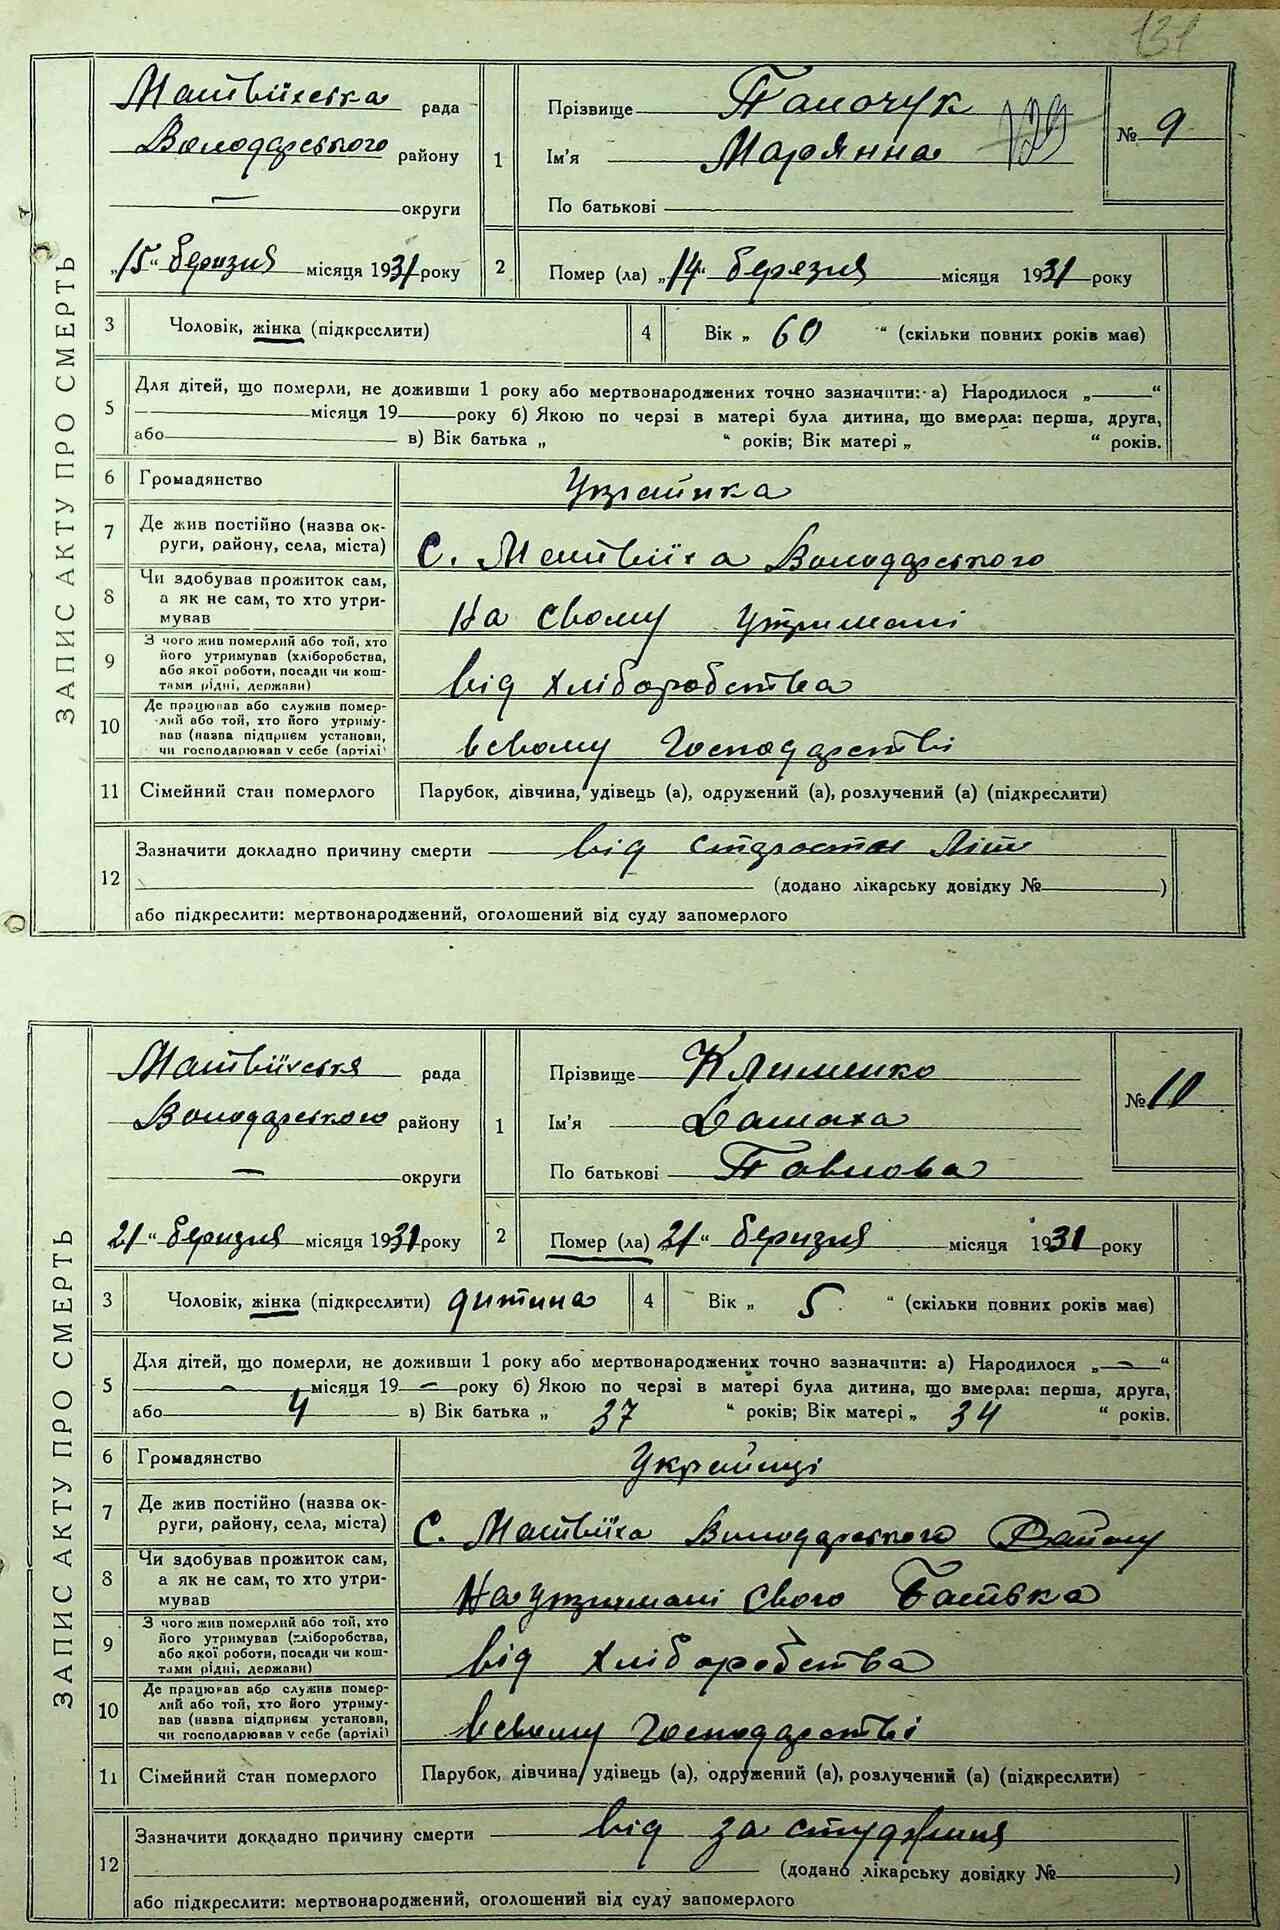 131
ЗАПИС АКТУ ПРО СМЕРТЬ
Матвіїхська рада
Володарського району
— округи
„15“ березня місяця 1931 року
1
Прізвище Паночук
Ім'я Марянна
По батькові
129
№ 9
2 Помер (ла) „14“ березня місяця 1931 року
3 Чоловік, жінка (підкреслити)
4 Вік „ 60 “ (скільки повних років має)
5 Для дітей, що померли, не доживши 1 року або мертвонароджених точно зазначити: а) Народилося „ “
місяця 19 року б) Якою по черзі в матері була дитина, що вмерла: перша, друга,
або в) Вік батька „ “ років; Вік матері „ “ років.
6 Громадянство Українка
7 Де жив постійно (назва ок-
руги, району, села, міста) С. Матвіїха Володарського
8 Чи здобував прожиток сам,
а як не сам, то хто утри-
мував На свому утримані
9 З чого жив померлий або той, хто
його утримував (хліборобства,
або якої роботи, посади чи кош-
тами рідні, держави) від хліборобства
10 Де працював або служив помер-
лий або той, хто його утриму-
вав (назва підприєм установи,
чи господарював у себе (артілі) всвому господарстві
11 Сімейний стан померлого Парубок, дівчина, удівець (а), одружений (а), розлучений (а) (підкреслити)
12 Зазначити докладно причину смерти від старости літ
(додано лікарську довідку № )
або підкреслити: мертвонароджений, оголошений від суду запомерлого
ЗАПИС АКТУ ПРО СМЕРТЬ
Матвіїхська рада
Володарського району
— округи
21“ березня місяця 1931 року
1
Прізвище Клименко
Ім'я Домаха
По батькові Павлова
№ 10
2 Помер (ла) 21“ березня місяця 1931 року
3 Чоловік, жінка (підкреслити) дитина
4 Вік „ 5 “ (скільки повних років має)
5 Для дітей, що померли, не доживши 1 року або мертвонароджених точно зазначити: а) Народилося „—“
— місяця 19 — року б) Якою по черзі в матері була дитина, що вмерла: перша, друга,
або 4 в) Вік батька „ 37 “ років; Вік матері „ 34 “ років.
6 Громадянство Українці
7 Де жив постійно (назва ок-
руги, району, села, міста) С. Матвіїха Володарського Району
8 Чи здобував прожиток сам,
а як не сам, то хто утри-
мував На утримані свого Батька
9 З чого жив померлий або той, хто
його утримував (хліборобства,
або якої роботи, посади чи кош-
тами рідні, держави) від хліборобства
10 Де працював або служив помер-
лий або той, хто його утриму-
вав (назва підприєм установи,
чи господарював у себе (артілі) всвому господарстві
11 Сімейний стан померлого Парубок, дівчина, удівець (а), одружений (а), розлучений (а) (підкреслити)
12 Зазначити докладно причину смерти від за студження
(додано лікарську довідку № )
або підкреслити: мертвонароджений, оголошений від суду запомерлого